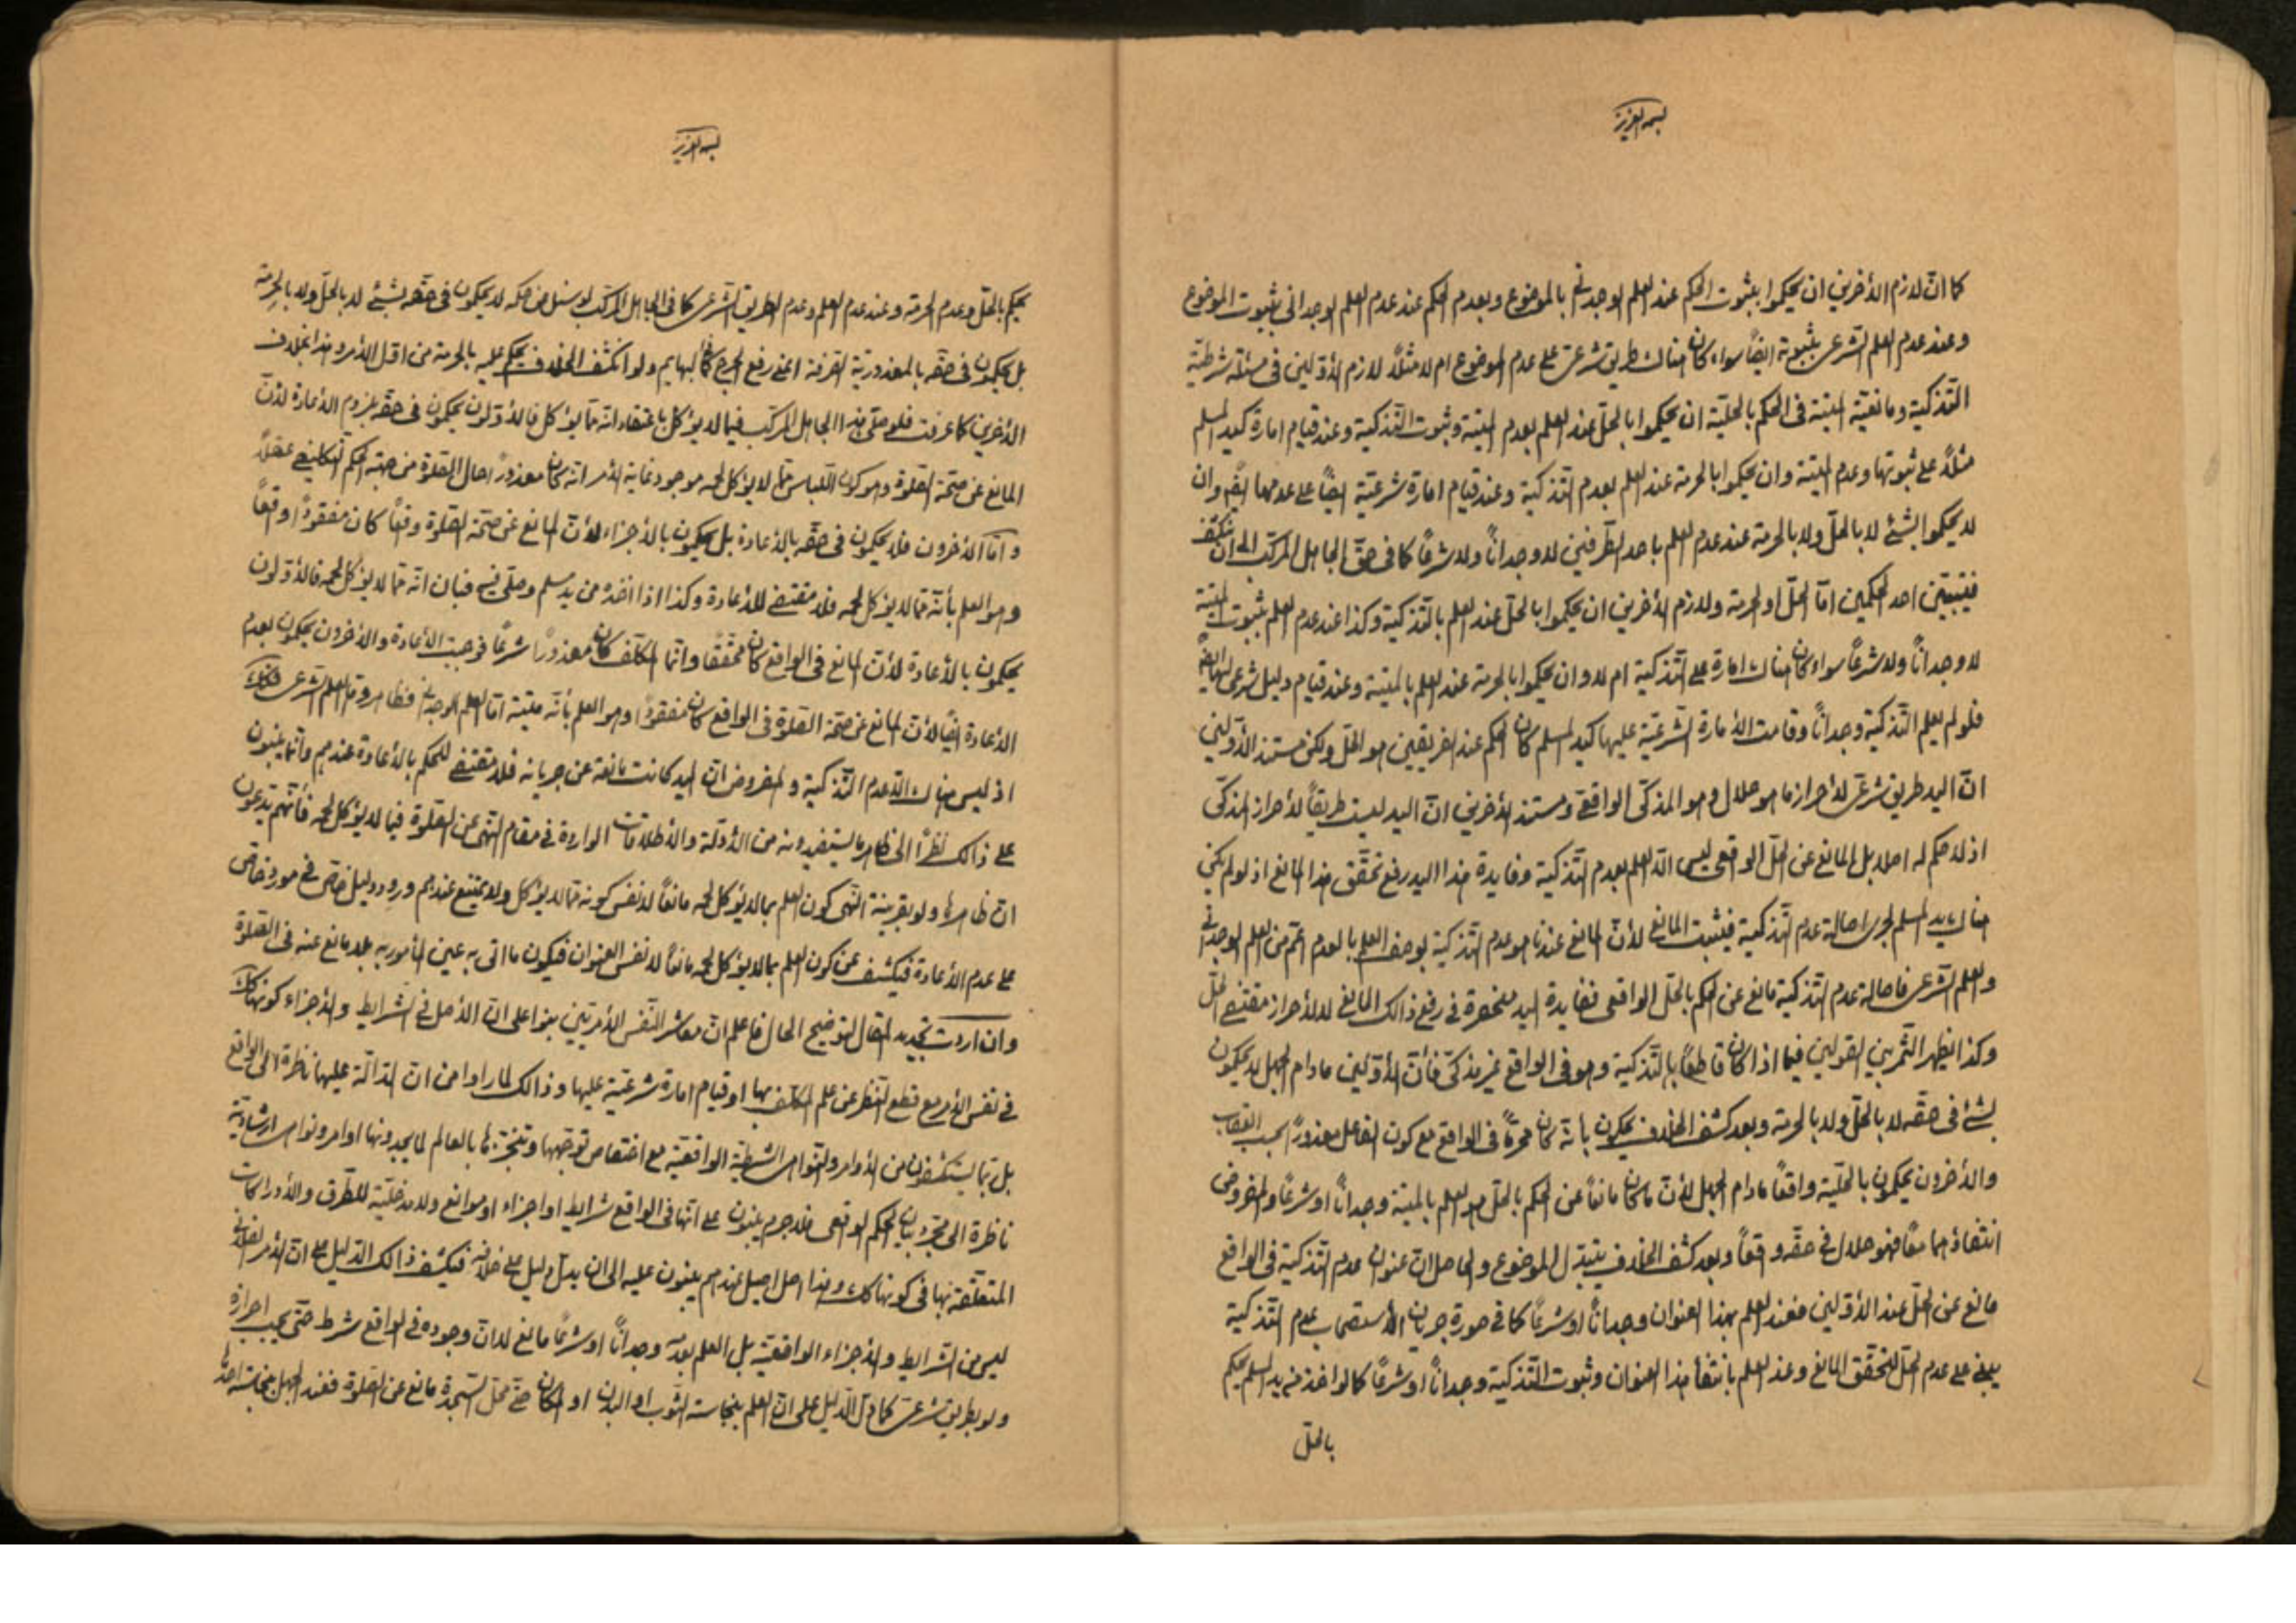 بسمه العزيز
كما ان لازم الأخرين ان يحكموا بثبوت الحكم عند العلم الوجدانى بالموضوع وبعدم الحكم عند عدم العلم الوجدانى بثبوت الموضوع
وعند عدم العلم الشرعى بثبوته ايضاً سواء كان هناك طريق شرعى على عدم الموضوع ام لا مثلاً لازم الأولين فى مسئلة شرطية
التذكية ومانعية الميتة فى الحكم بالحلية ان يحكموا بالحل عند العلم بعدم الميتة وثبوت التذكية وعند قيام امارة كيد المسلم
مثلاً على ثبوتها وعدم الميتة وان يحكموا بالحرمة عند العلم بعدم التذكية وعند قيام امارة شرعية ايضاً على عدمها ايضاً وان
لا يحكموا بشئ لا بالحل ولا بالحرمة عند عدم العلم باحد الطرفين لا وجداناً ولا شرعاً كما فى حق الجاهل المركب الى ان ينكشف
فيتبين احد الحكمين اما الحل او الحرمة ولازم الأخرين ان يحكموا بالحل عند العلم بالتذكية وكذا عند عدم العلم بثبوت الميتة
لا وجداناً ولا شرعاً سواء كان هناك امارة على التذكية ام لا وان يحكموا بالحرمة عند العلم بالميتة وعند قيام دليل شرعى عليها ايضاً
فلو لم يعلم التذكية وجداناً وقامت الأمارة الشرعية عليها كيد المسلم كان الحكم عند الفريقين هو الحل ولكن مستند الأولين
ان اليد طريق شرعى لأحراز ما هو حلال وهو المذكى الواقعى ومستند الأخرين ان اليد ليست طريقاً لأحراز المذكى
اذ لا حكم له اصلا بل المانع عن الحل الواقعى ليس الا العلم بعدم التذكية وفايدة هذا اليد رفع تحقق هذا المانع اذ لو لم يكن
هناك يد المسلم لجرى اصالة عدم التذكية فيثبت المانع لأن المانع عندنا هو عدم التذكية بوصف العلم بالعدم اعم من العلم الوجدانى
والعلم الشرعى فاصالة عدم التذكية مانع عن الحكم بالحل الواقعى ففايدة اليد منحصرة فى رفع ذالك المانع لا لأحراز مقتضى الحل
وكذا يظهر الثمر بين القولين فيما اذا كان قاطعاً بالتذكية وهو فى الواقع غير مذكى فان الأولين مادام الجهل لا يحكمون
بشئ فى حقه لا بالحل ولا بالحرمة وبعد كشف الخلاف يحكمون بأنه كان محرماً فى الواقع مع كون الفاعل معذوراً بحسب العقاب
والأخرون يحكمون بالحلية واقعاً مادام الجهل لأن ما كان مانعاً عن الحكم بالحل هو العلم بالميتة وجداناً او شرعاً والمفروض
انتفاؤهما معاً فهو حلال فى حقه واقعاً وبعد كشف الخلاف يتبدل الموضوع والحاصل ان عنوان عدم التذكية فى الواقع
مانع عن الحل عند الأولين فعند العلم بهذا العنوان وجداناً او شرعاً كما فى صورة جريان الأستصحاب بعدم التذكية
يبنى على عدم الحل لتحقق المانع وعند العلم بانتفاء هذا العنوان وثبوت التذكية وجداناً او شرعاً كما لو اخذ من يد المسلم يحكم
بالحل
بسمه العزيز
يحكم بالحل وعدم الحرمة وعند عدم العلم وعدم الطريق الشرعى كما فى الجاهل المركب لو سئل عن حكمه لا يحكمون فى حقه بشئ لا بالحل ولا بالحرمة
بل يحكمون فى حقه بالمعذورية الصرفة اعنى رفع الحرج كما فى البهايم ولو انكشف الخلاف يحكم عليه بالحرمة من اول الأمر وهذا بخلاف
الأخرين كما عرفت فلو صلى هذا الجاهل المركب فيما لا يؤكل باعتقاد انه مما يؤكل فالأولون يحكمون فى حقه بلزوم الأعادة لأن
المانع عن صحة الصلوة وهو كون اللباس مما لا يؤكل لحمه موجود غاية الأمر انه كان معذوراً حال الصلوة من جهة الحكم التكليفى عقلاً
واما الأخرون فلا يحكمون فى حقه بالأعادة بل يحكمون بالأجزاء لأن المانع عن صحة الصلوة واقعاً كان مفقوداً واقعاً
وهو العلم بأنه مما لا يؤكل لحمه فلا مقتضى للأعادة وكذا اذا اخذه من يد مسلم وصلى فيه فبان انه مما لا يؤكل لحمه فالأولون
يحكمون بالأعادة لأن المانع فى الواقع كان محققاً وانما المكلف كان معذوراً شرعاً فوجبت الأعادة والأخرون يحكمون بعدم
الأعادة ايضاً لأن المانع عن صحة الصلوة فى الواقع كان مفقوداً وهو العلم بأنه ميتة اما العلم الوجدانى فظاهر واما العلم الشرعى فكذلك
اذ ليس هناك الا عدم التذكية والمفروض ان اليد كانت مانعة عن جريانه فلا مقتضى للحكم بالأعادة عندهم وانما يبنون
على ذالك نظراً الى ظاهر ما يستفيدونه من الأدلة والأطلاقات الواردة فى مقام النهى عن الصلوة فيما لا يؤكل لحمه فأنهم يدعون
ان ظاهرها ولو بقرينة النهى كون العلم بما لا يؤكل لحمه مانعاً لا نفس كونه مما لا يؤكل ولا يمتنع عندهم ورود دليل خاص فى مورد خاص
على عدم الأعادة فيكشف عن كون العلم بما لا يؤكل لحمه مانعاً لا نفس العنوان فيكون ما اتى به عين المأمور به بلا مانع عنه فى الصلوة
وان اردت تجديد المقال لتوضيح الحال فاعلم ان معاشر النفس الأمريين بنوا على ان الأصل فى الشرايط والأجزاء كونها كك
فى نفس الأمر مع قطع النظر عن علم المكلف بها او قيام امارة شرعية عليها وذالك لما راوا من ان الدالة عليها ناظرة الى الواقع
بل ربما يستكشفون من الأوامر والنواهى الشرطية الواقعية مع اختصاص توجهها وتنجزها بالعالم لما يجدونها اوامر ونواهى ارشادية
ناظرة الى مجرد بيان الحكم الواقعى فلا جرم يبنون على انها فى الواقع شرايط او اجزاء او موانع ولا مدخلية للطرق والأدراكات
المتعلقة بها فى كونها كك وهذا اصل اصيل عندهم يبنون عليه الى ان يدل دليل على خلافه فيكشف ذالك الدليل على ان الأمر الفلانى
ليس من الشرايط والأجزاء الواقعية بل العلم بعدمه وجداناً او شرعاً مانع لا ان وجوده فى الواقع شرط حتى يجب احرازه
ولو بطريق شرعى كما دل الدليل على ان العلم بنجاسة الثوب او البدن او المكان حتى محل السجدة مانع عن الصلوة فعند الجهل بنجاسة احدها